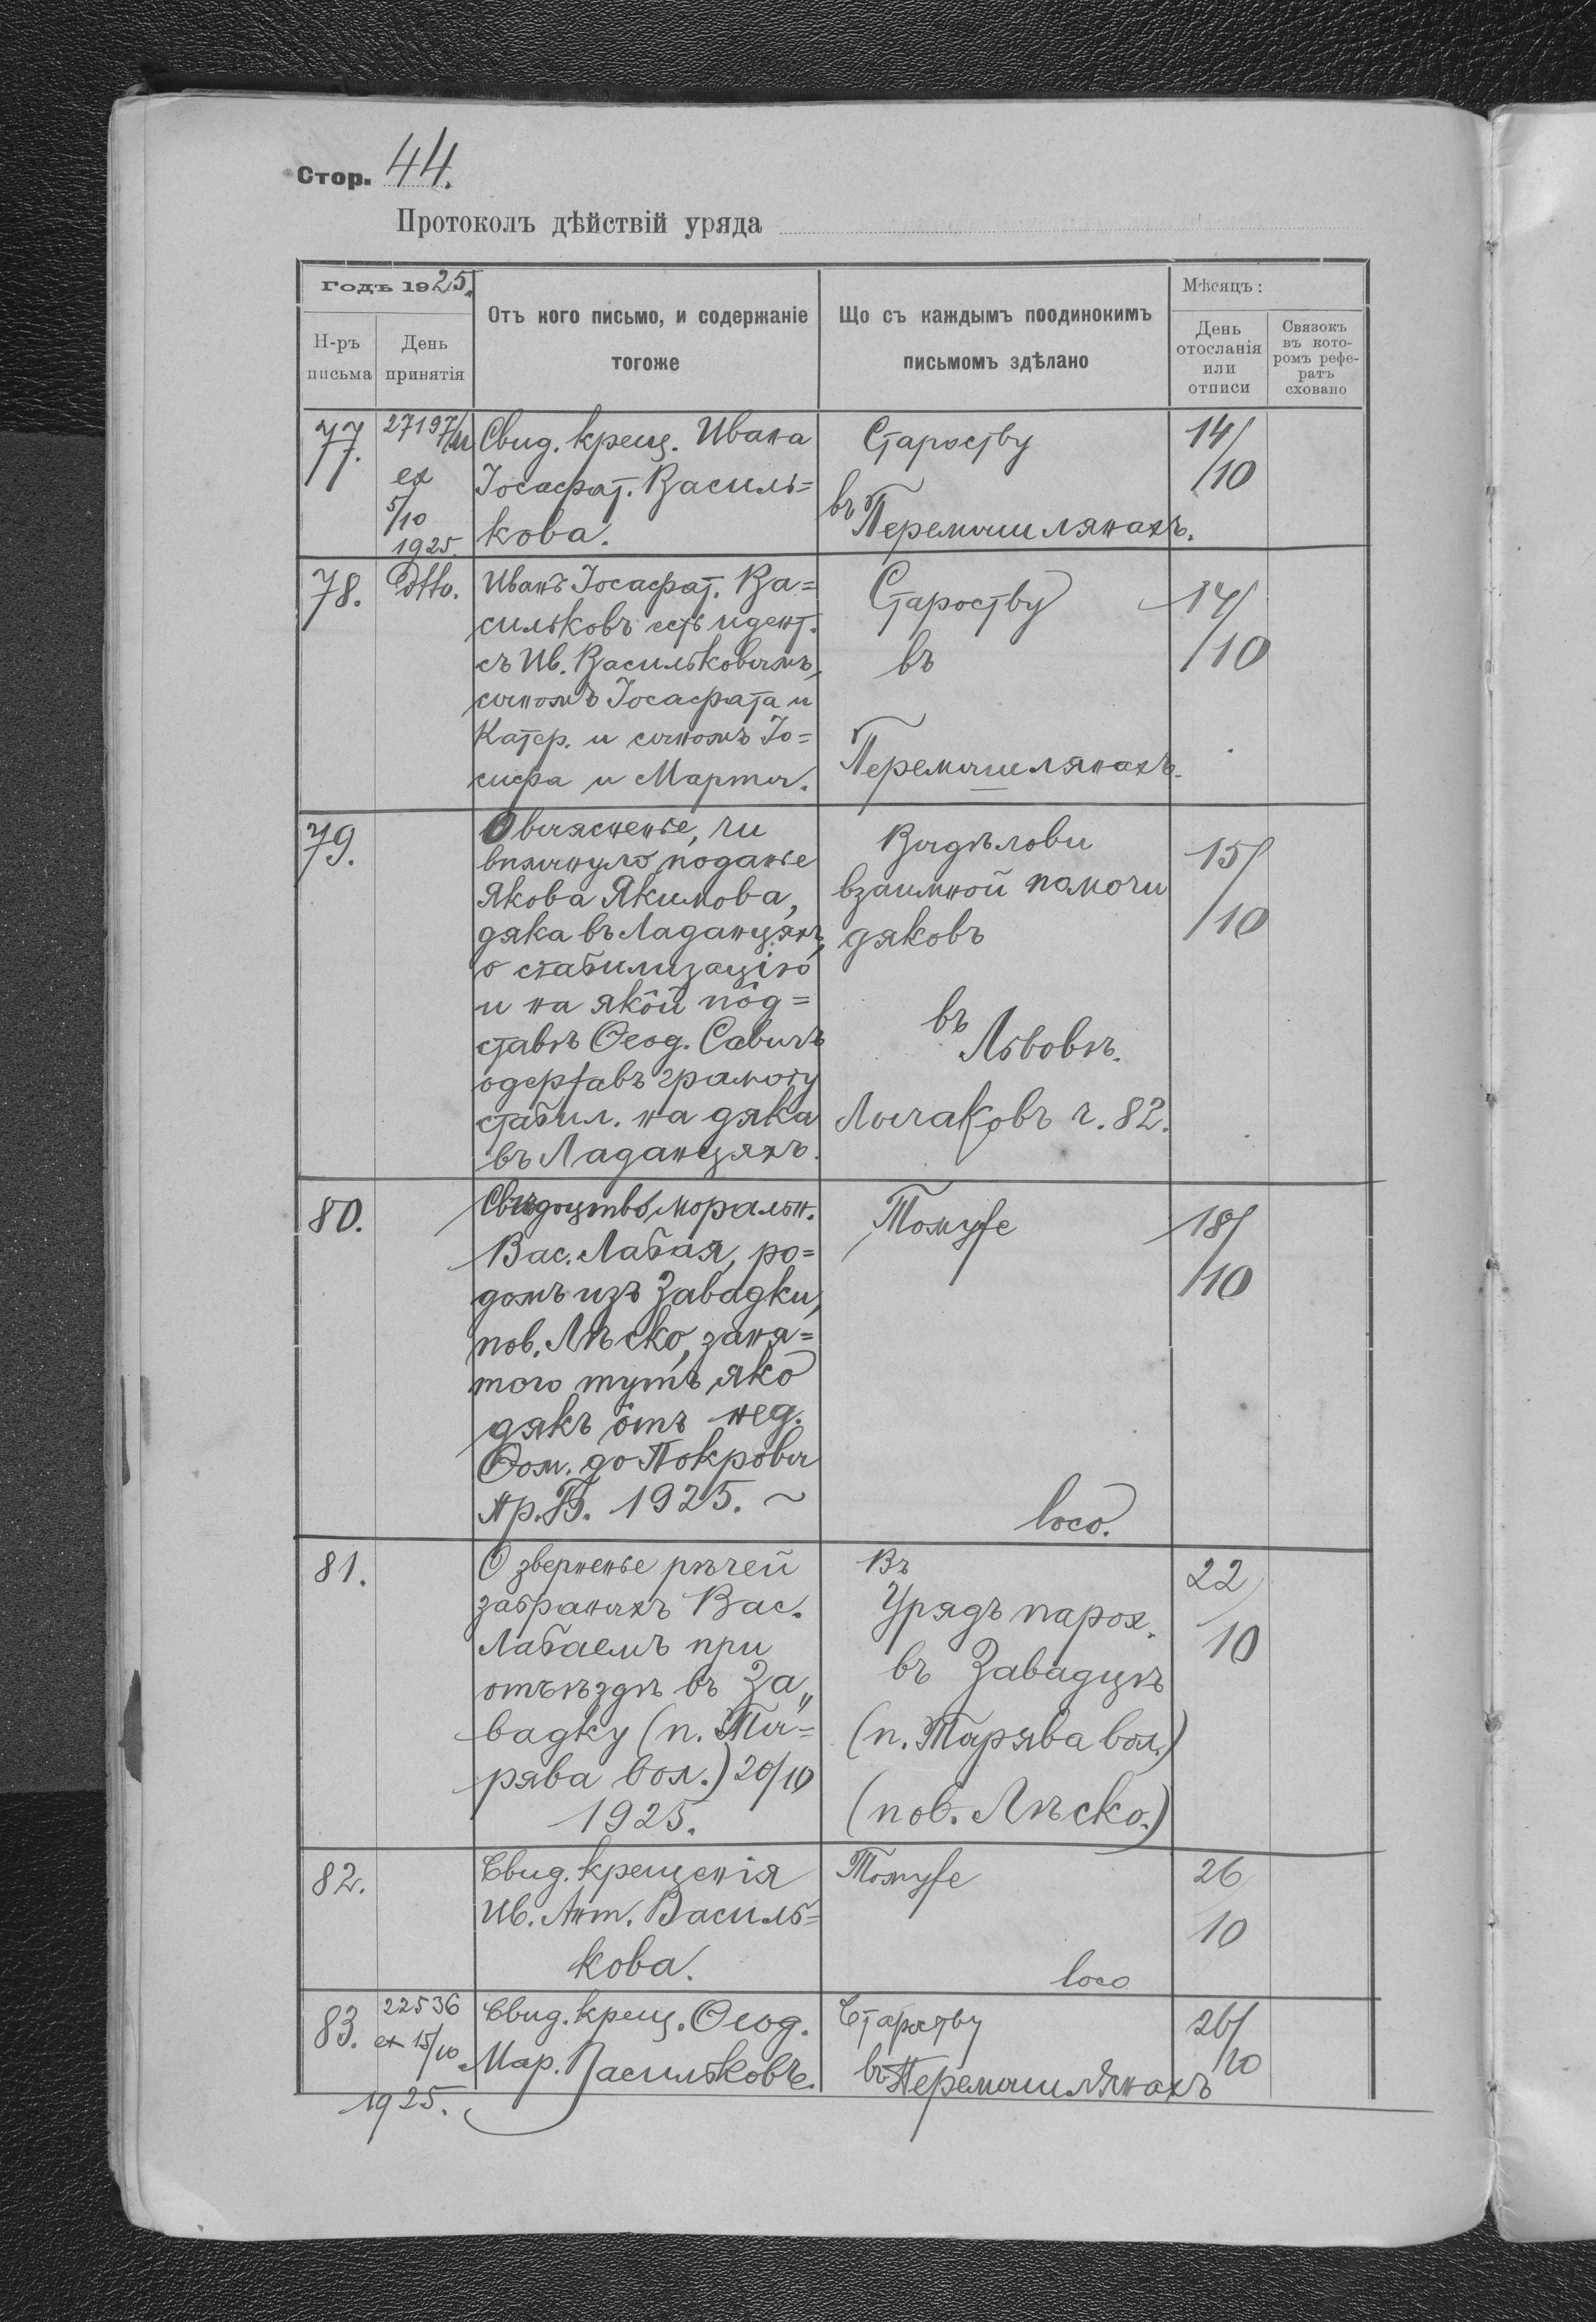 Стор. 44.
Протоколъ дѣйствій уряда
Годъ 1925.
Н-ръ письма
День принятія
Отъ кого письмо, и содержаніе
тогоже
Що съ каждымъ поодинокимъ
письмомъ здѣлано
Мѣсяцъ:
День
отосланія
или
отписи
Связокъ
въ кото-
ромъ рефе-
ратъ
сховано
77.
27197/
ex
5/10
1925.
Свид. крещ. Ивана
Іосафат. Василь=
кова.
Староству
въ Перемышлянахъ.
14/
/10
78.
Dtto.
Иванъ Іосафат. Ва=
сильковъ есть идент.
съ Ив. Васильковымъ,
сыномъ Іосафата и
Катер. и сыномъ Іо=
сифа и Марты.
Староству
въ
Перемышлянахъ.
14/
/10
79.
О выясненье, чи
вплынуло поданье
Якова Якимова,
дяка въ Ладанцяхъ,
о стабилизацію
и на якôй пôд=
ставѣ Ѳеод. Савичъ
одержавъ грамоту
стабил. на дяка
въ Ладанцяхъ.
Выдѣлови
взаимной помочи
дяковъ
въ
Львовѣ.
Лычаковъ ч. 82.
15/
/10
80.
Свѣдоцтво моральн.
Вас. Лабая, ро=
домъ изъ Завадки,
пов. Лѣско, заня=
того тутъ яко
дякъ ôтъ нед.
Ѳом. до Покровы
Пр. Б. 1925. ~
Томуже
loco.
18/
/10
81.
О зверненье рѣчей
забраныхъ Вас.
Лабаемъ при
отъѣздѣ въ За„
вадку (п. Ты=
рява вол.) 20/10
1925.
Въ
Урядъ парох.
въ Завадцѣ
(п. Тырява вол.)
(пов. Лѣско.)
22
10
82.
Свид. крещенія
Ив. Ант. Василь=
кова.
Томуже
loco
26
10
83.
22536
ex 15/10
1925.
Свид. крещ. Ѳеод.
Мар. Васильковъ.
Староству
въ Перемышлянахъ
26/
/10